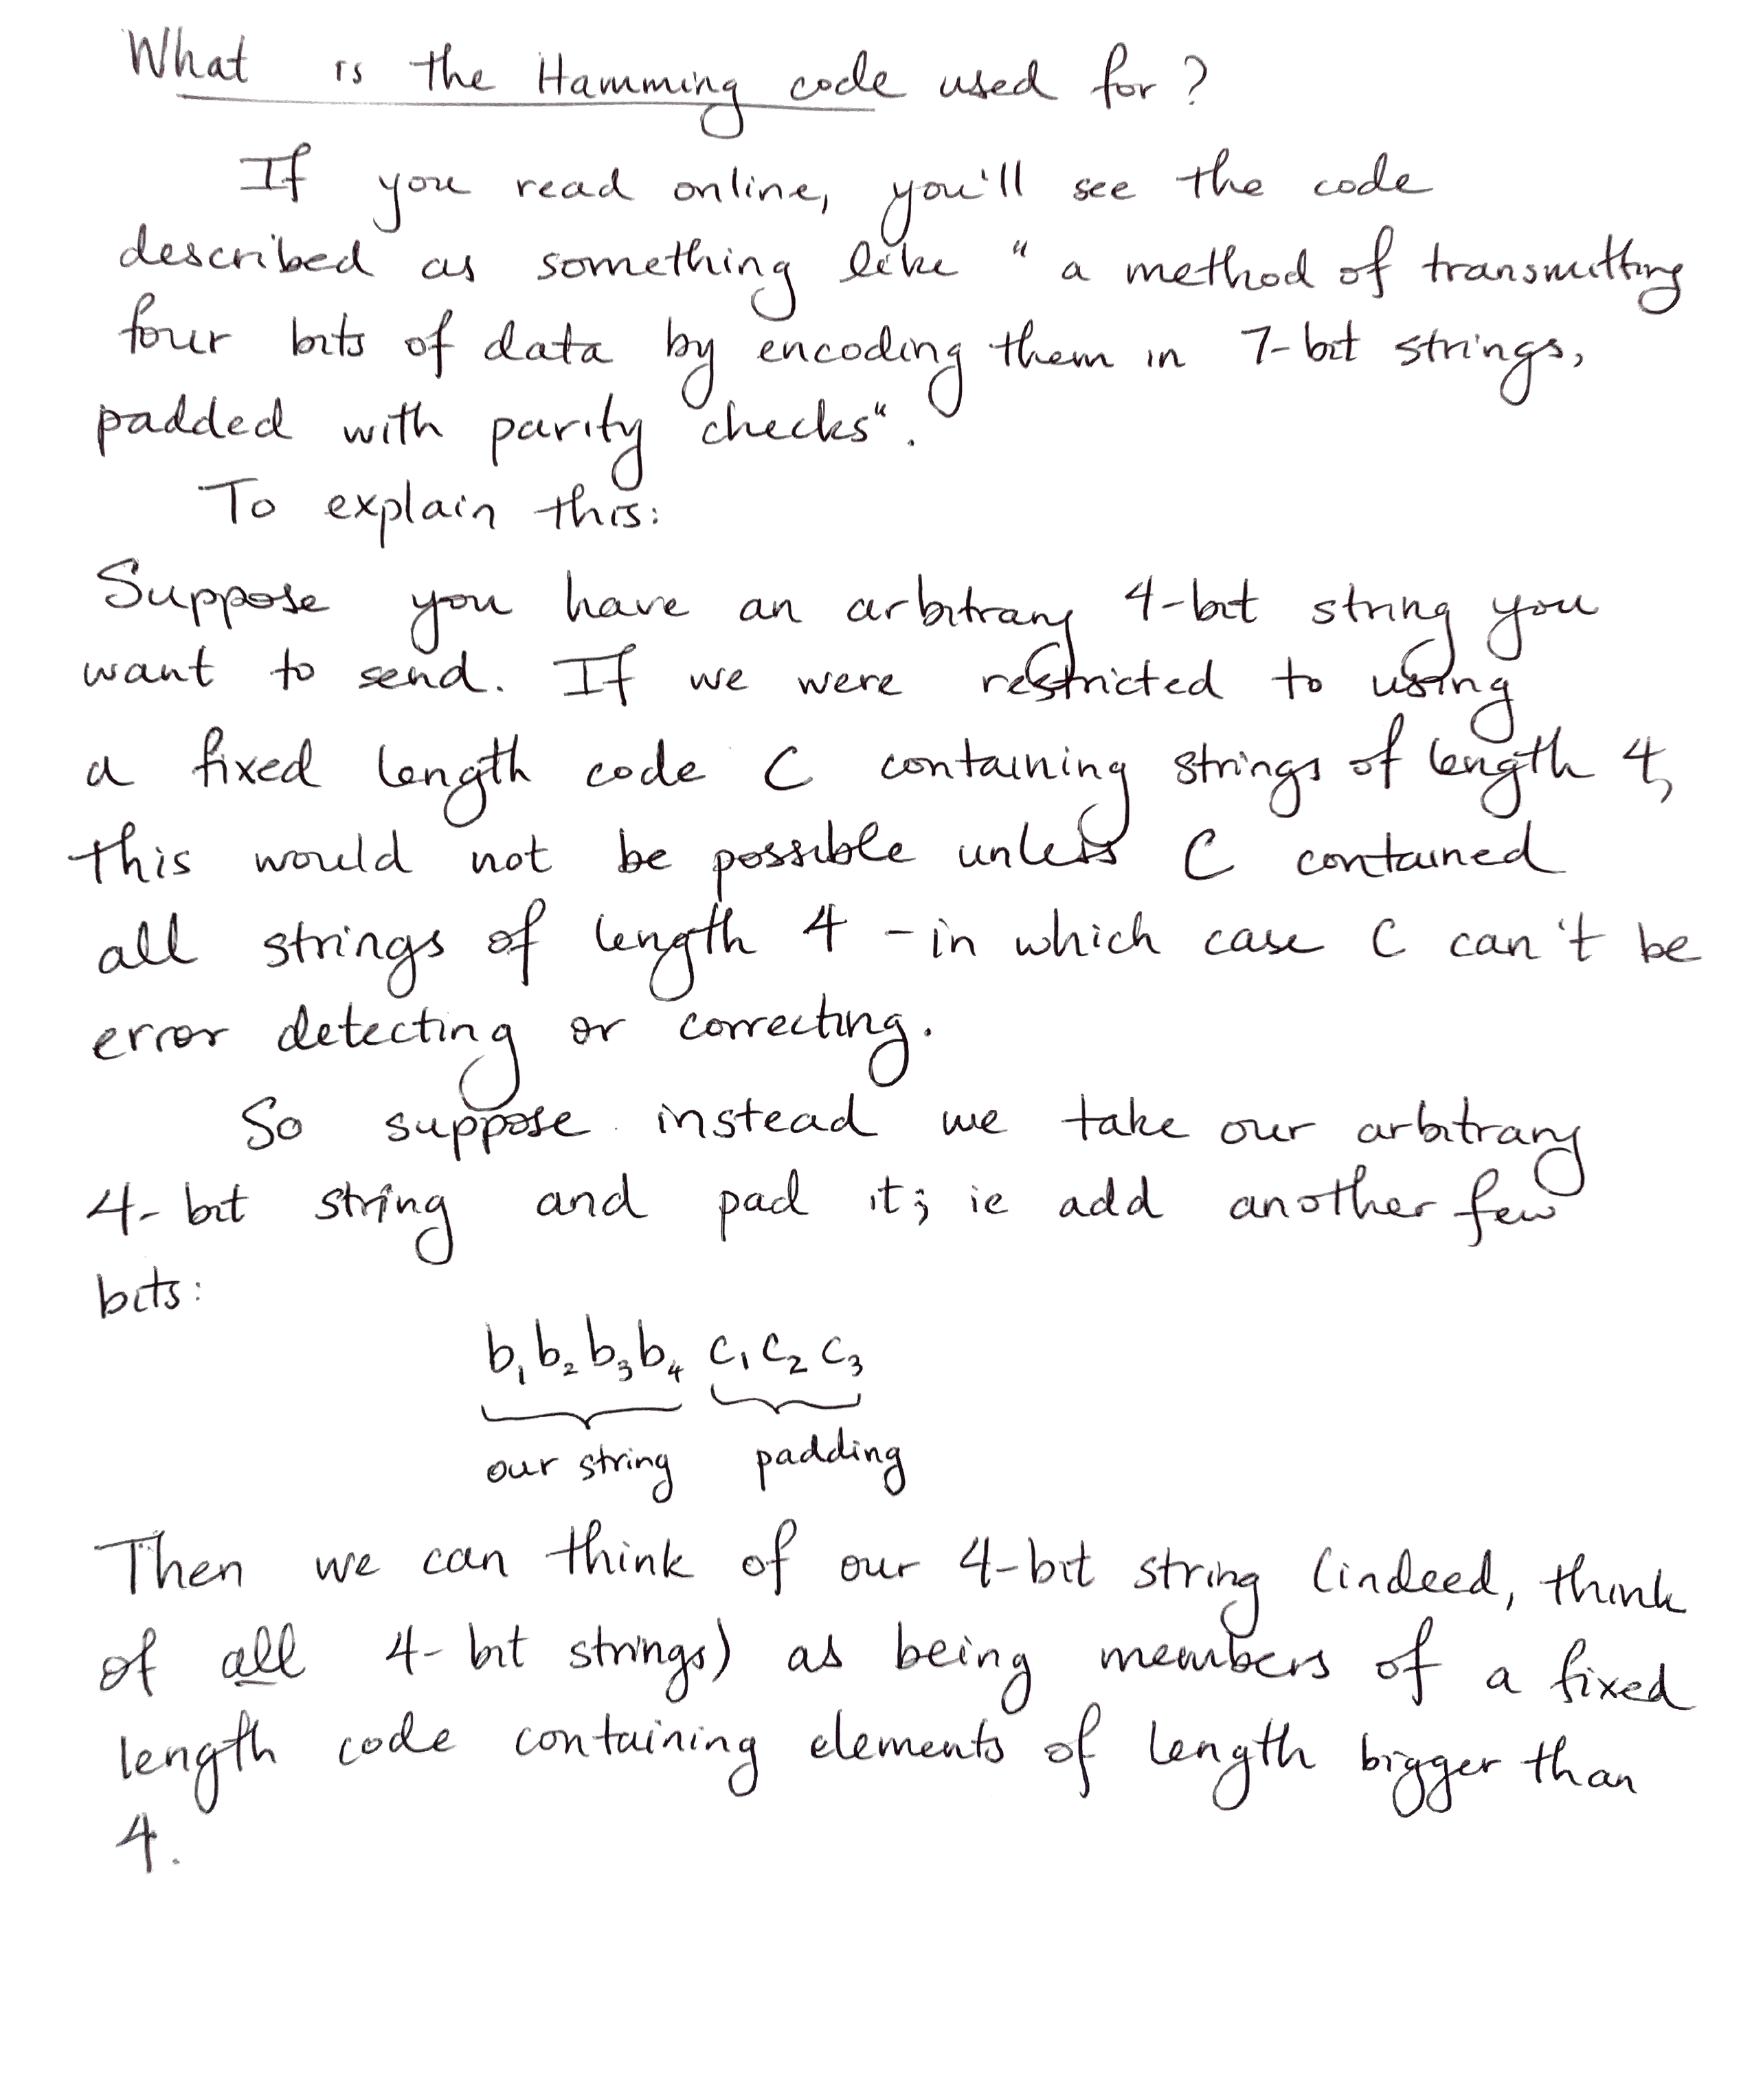 What is the Hamming code used for?
If you read online, you'll see the code
described as something like "a method of transmitting
four bits of data by encoding them in 7-bit strings,
padded with parity checks".
To explain this:
Suppose you have an arbitrary 4-bit string you
want to send. If we were restricted to using
a fixed length code C containing strings of length 4,
this would not be possible unless C contained
all strings of length 4 - in which case C can't be
error detecting or correcting.
So suppose instead we take our arbitrary
4-bit string and pad it; ie add another few
bits:
b₁b₂b₃b₄ c₁c₂c₃
our string padding
Then we can think of our 4-bit string (indeed, think
of all 4-bit strings) as being members of a fixed
length code containing elements of length bigger than
4.